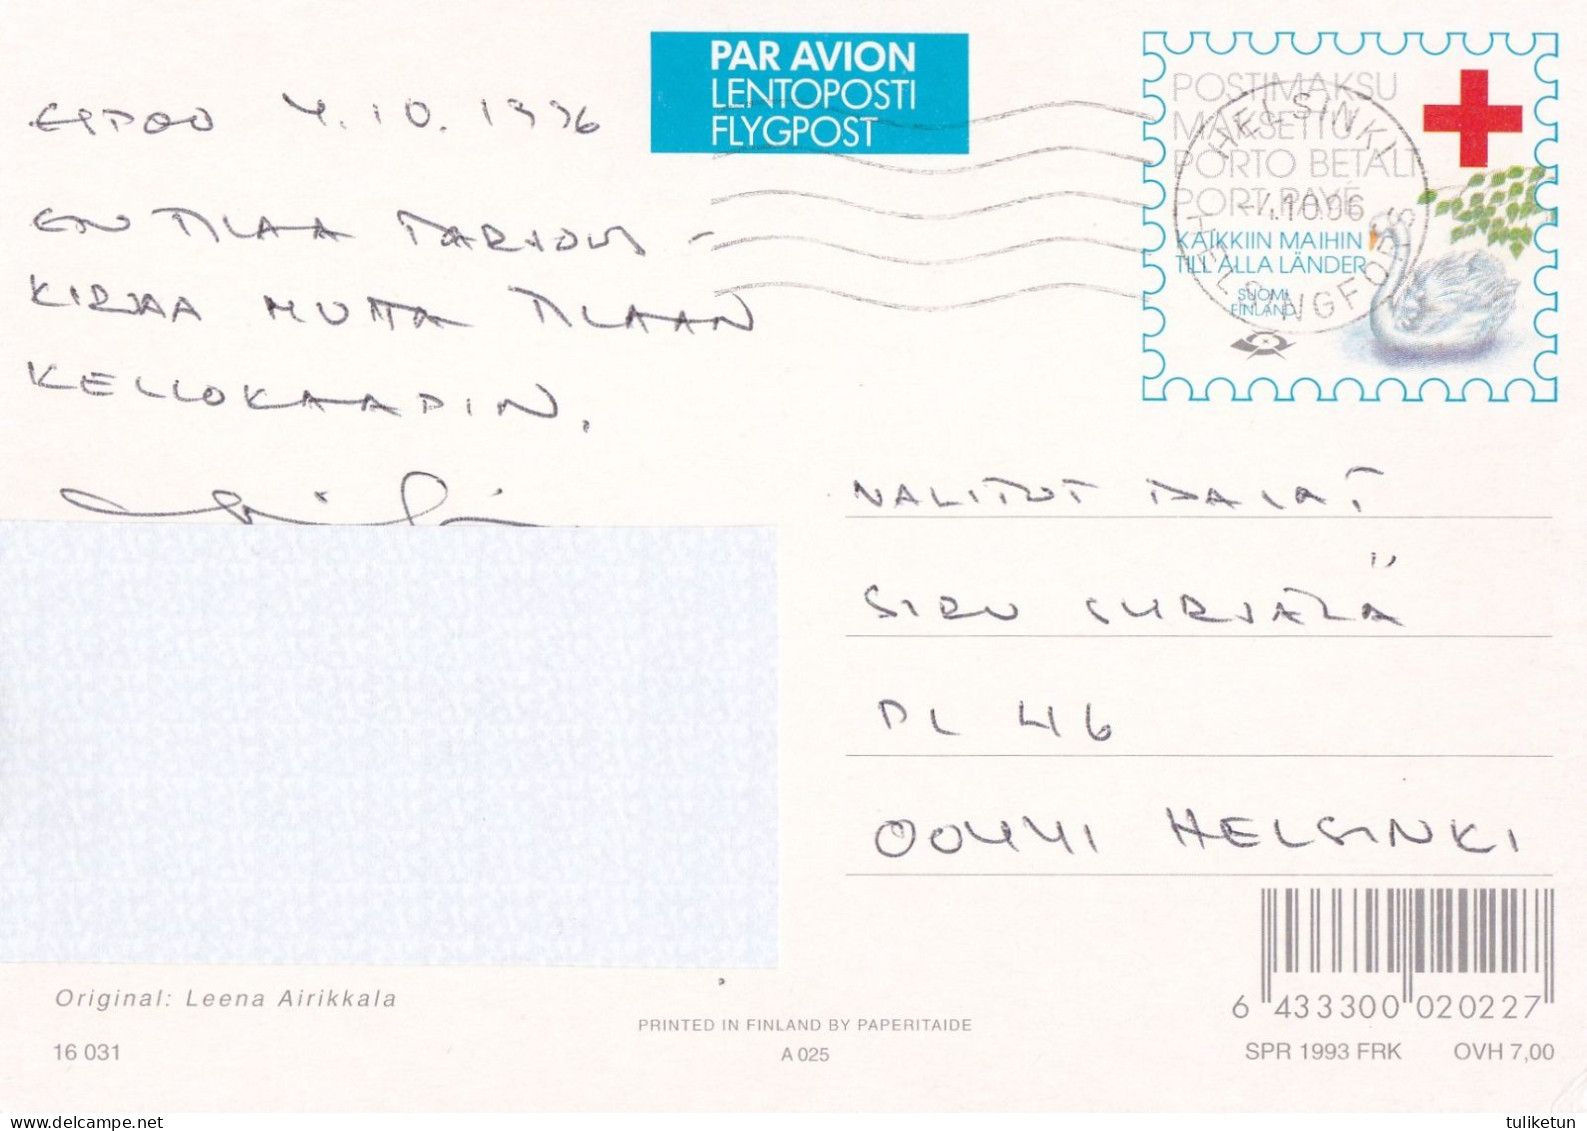 PAR AVION
LENTOPOSTI
FLYGPOST
POSTIMAKSU
MAKSETTU
PORTO BETALT
PORT PAYÉ
KAIKKIIN MAIHIN
TILL ALLA LÄNDER
SUOMI
FINLAND
HELSINKI
-4.10.96
HELSINGFORS
ESPOO 4.10.1996
EN TILAA TARJOUS-
KIRJAA MUTTA TILAAN
KELLOKAAPIN.
NALITUT
SIRU
PL 46
00441 HELSINKI
Original: Leena Airikkala
16 031
PRINTED IN FINLAND BY PAPERITAIDE
A 025
6 433300 020227
SPR 1993 FRK OVH 7,00
tuliketun